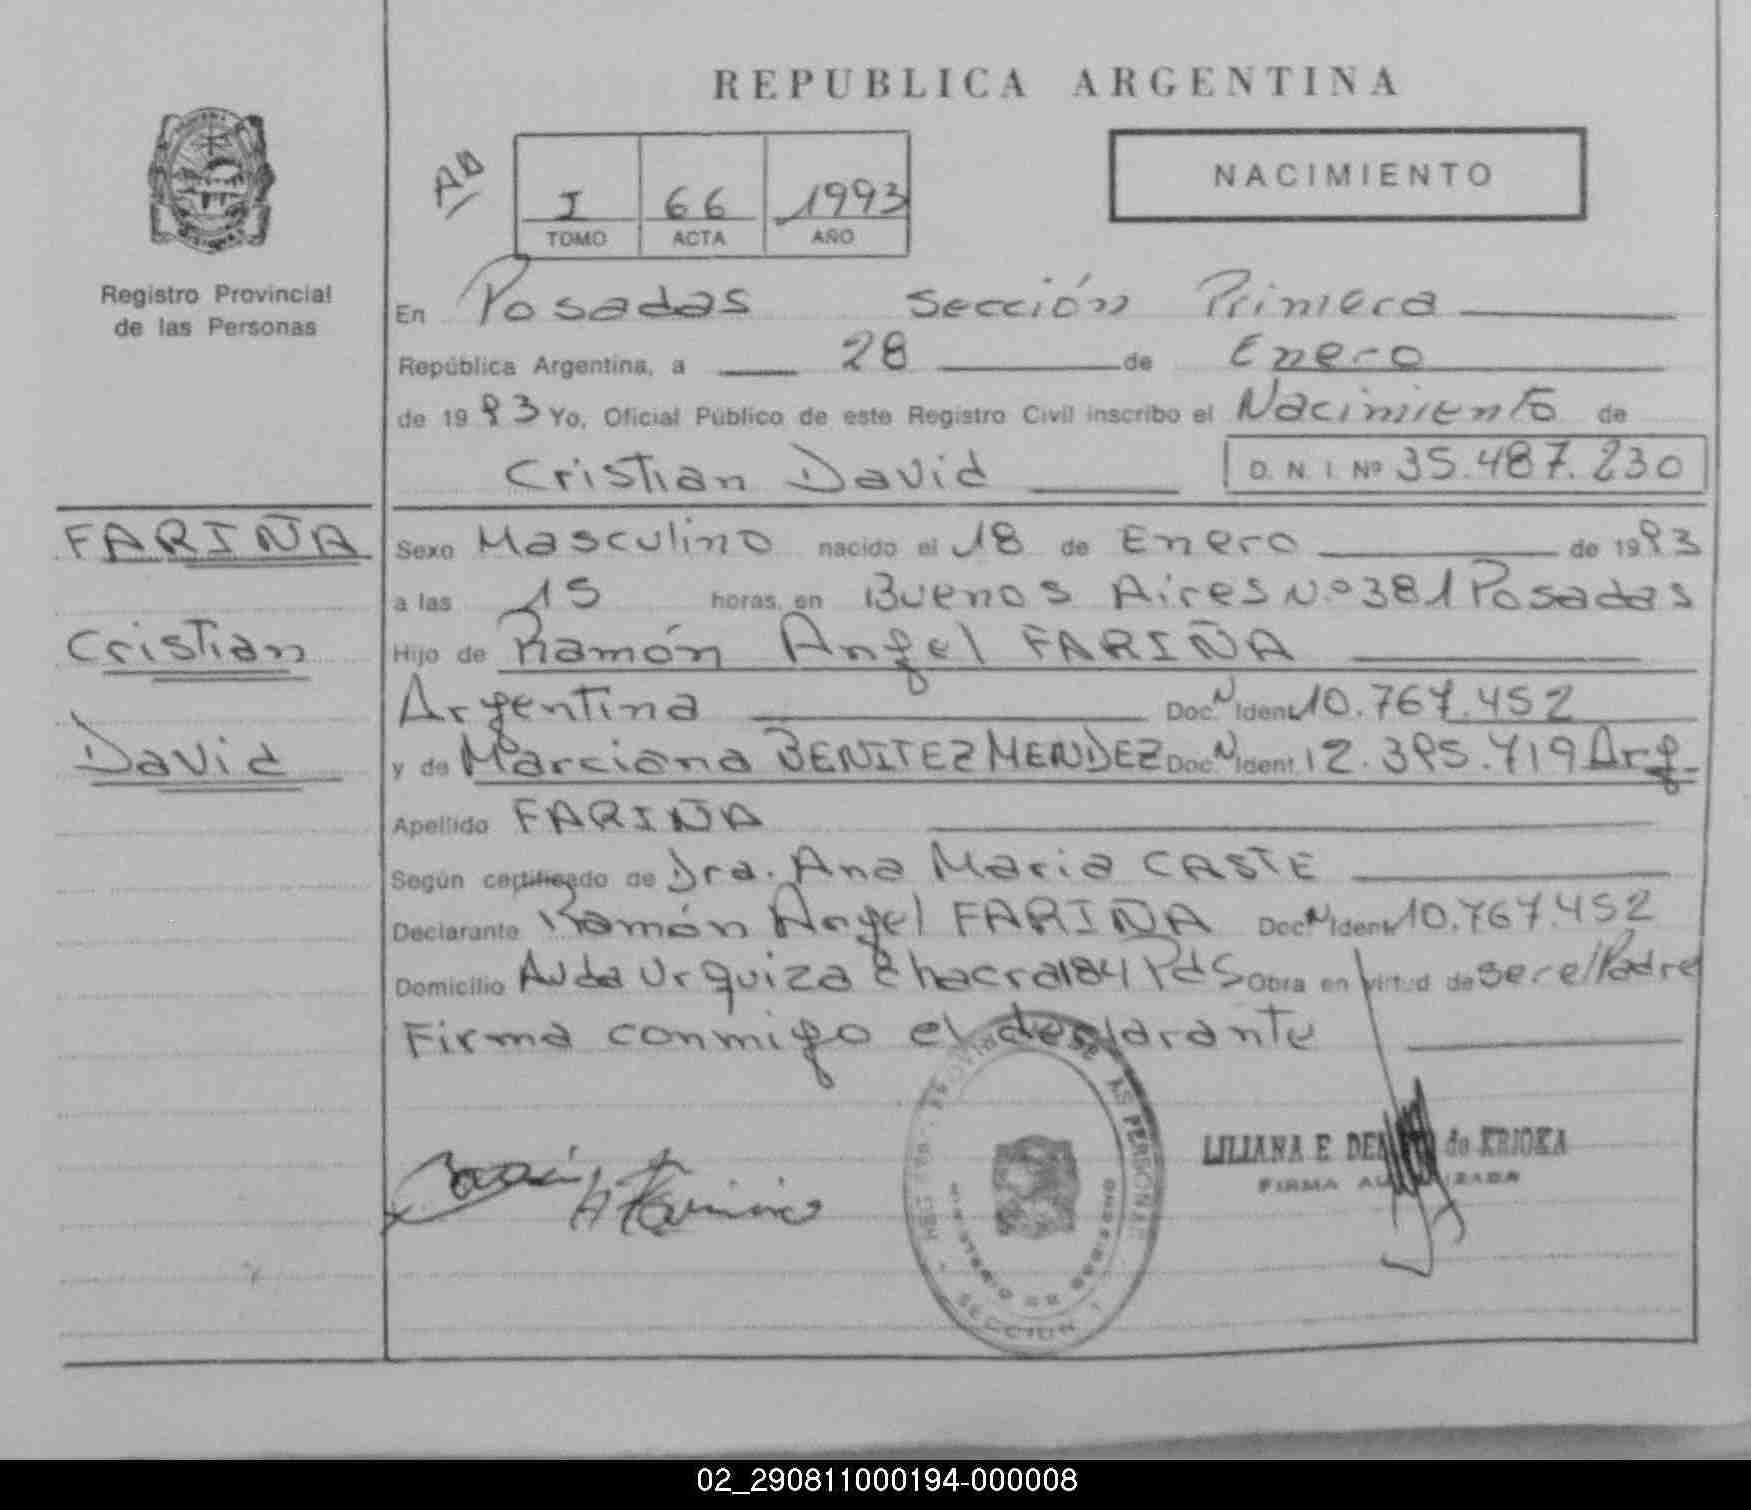 REPUBLICA ARGENTINA
Registro Provincial
de las Personas
I 66 1993
TOMO ACTA AÑO
NACIMIENTO
En Posadas Sección Primera
República Argentina, a 28 de Enero
de 1993 Yo, Oficial Público de este Registro Civil inscribo el Nacimiento de
Cristian David D. N. I. Nº 35.487.230
FARIÑA
Cristian
David
Sexo Masculino nacido el 18 de Enero de 1993
a las 15 horas, en Buenos Aires Nº 381 Posadas
Hijo de Ramón Angel FARIÑA
Argentina Doc. N Ident. 10.767.452
y de Marciana BENITEZ MENDEZ Doc. N Ident. 12.395.719 Arg
Apellido FARIÑA
Según certificado de Dra. Ana Maria CASTE
Declarante Ramón Angel FARIÑA Doc. N Ident. 10.767.452
Domicilio Avda Urquiza Chacra 184 Pds Obra en virtud de ser el Padre
Firma conmigo el declarante
LILIANA E de KRIOKA
FIRMA
SECCION 1
02_290811000194-000008